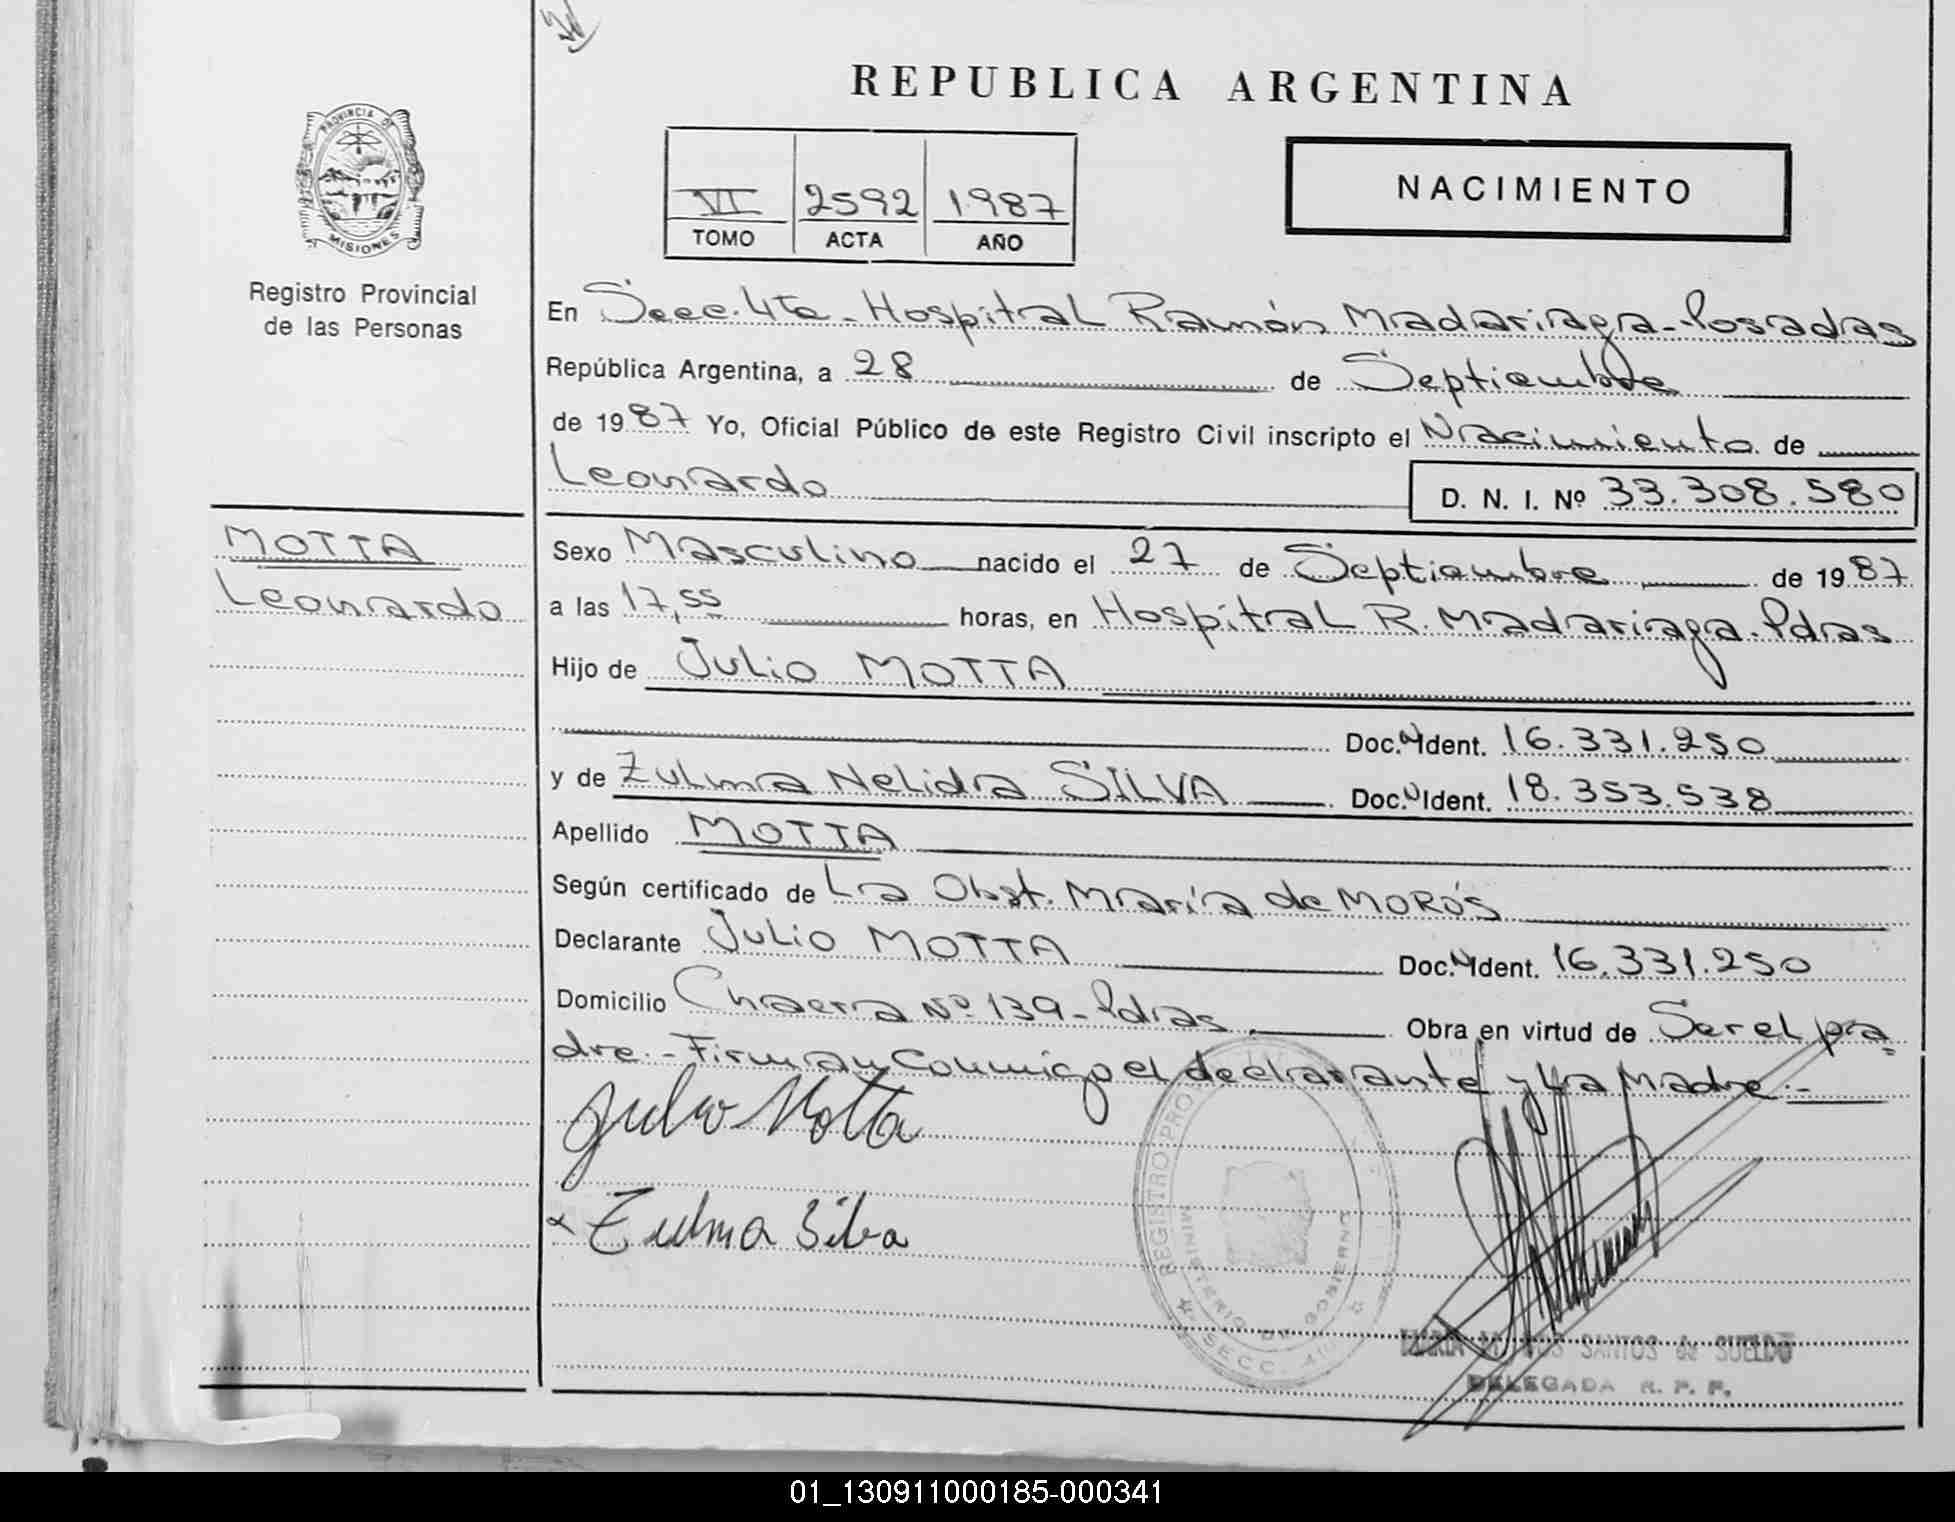 REPUBLICA ARGENTINA
PROVINCIA DE
MISIONES
Registro Provincial
de las Personas
VI 2592 1987
TOMO ACTA AÑO
NACIMIENTO
En Secc. 4ta - Hospital Ramón Madariaga - Posadas
República Argentina, a 28 de Septiembre
de 1987 Yo, Oficial Público de este Registro Civil inscripto el Nacimiento de
Leonardo
D. N. I. Nº 33.308.580
MOTTA
Leonardo
Sexo Masculino nacido el 27 de Septiembre de 1987
a las 17,55 horas, en Hospital R. Madariaga - Pdas
Hijo de Julio MOTTA
Doc. N Ident. 16.331.250
y de Zulma Nelida SILVA Doc. N Ident. 18.353.538
Apellido MOTTA
Según certificado de La Obst. María de MORÓS
Declarante Julio MOTTA Doc. N Ident. 16.331.250
Domicilio Chacra Nº 139 - Pdas Obra en virtud de Ser el pa
dre.- Firman Conmigo el declarante y La Madre.-
Julio Motta
x Zulma Silva
REGISTRO PRO
MINISTERIO DE GOBIERNO
SECC. 4
MARIA SANTOS de SUELDO
DELEGADA R. P. P.
01_130911000185-000341